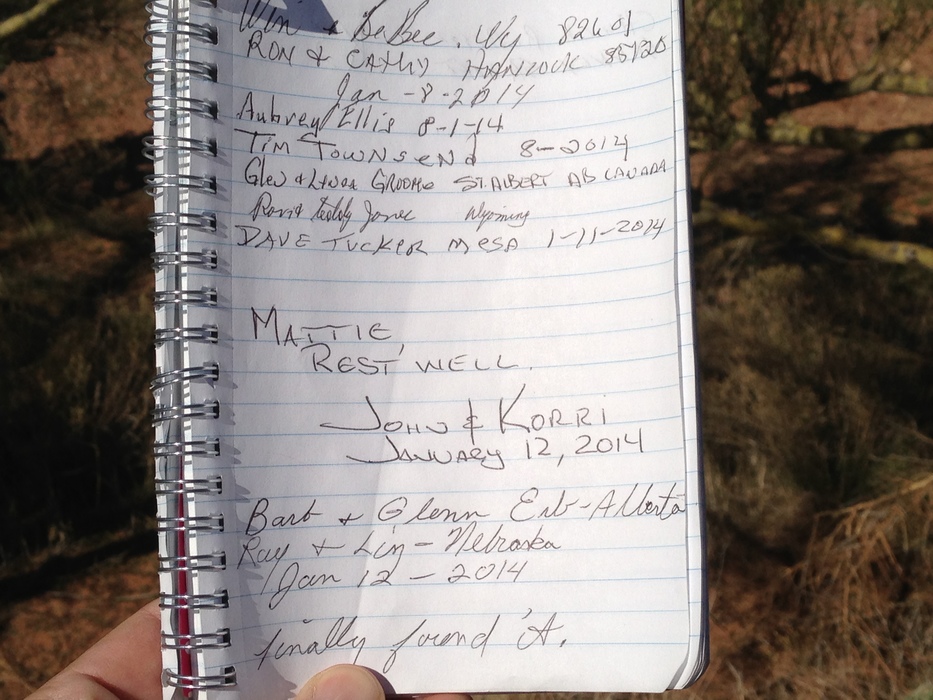 & DeBec. Wy 82601
RON & CATHY HANCOCK 85120
Jan -8-2014
Aubrey Ellis 8-1-14
TIM TOWNSEND 8-2014
Glen & Linda GROOMS ST. ALBERT AB CANADA
Jones Wyoming
DAVE TUCKER MESA 1-11-2014
MATTIE,
REST WELL.
JOHN & KORRI
JANUARY 12, 2014
Barb & Glenn Erb-Alberta
Ray & Liz - Nebraska
Jan 12 - 2014
finally found it.